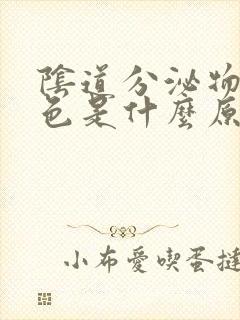 陰道分泌物
色是什麼原
小布愛喫蛋撻